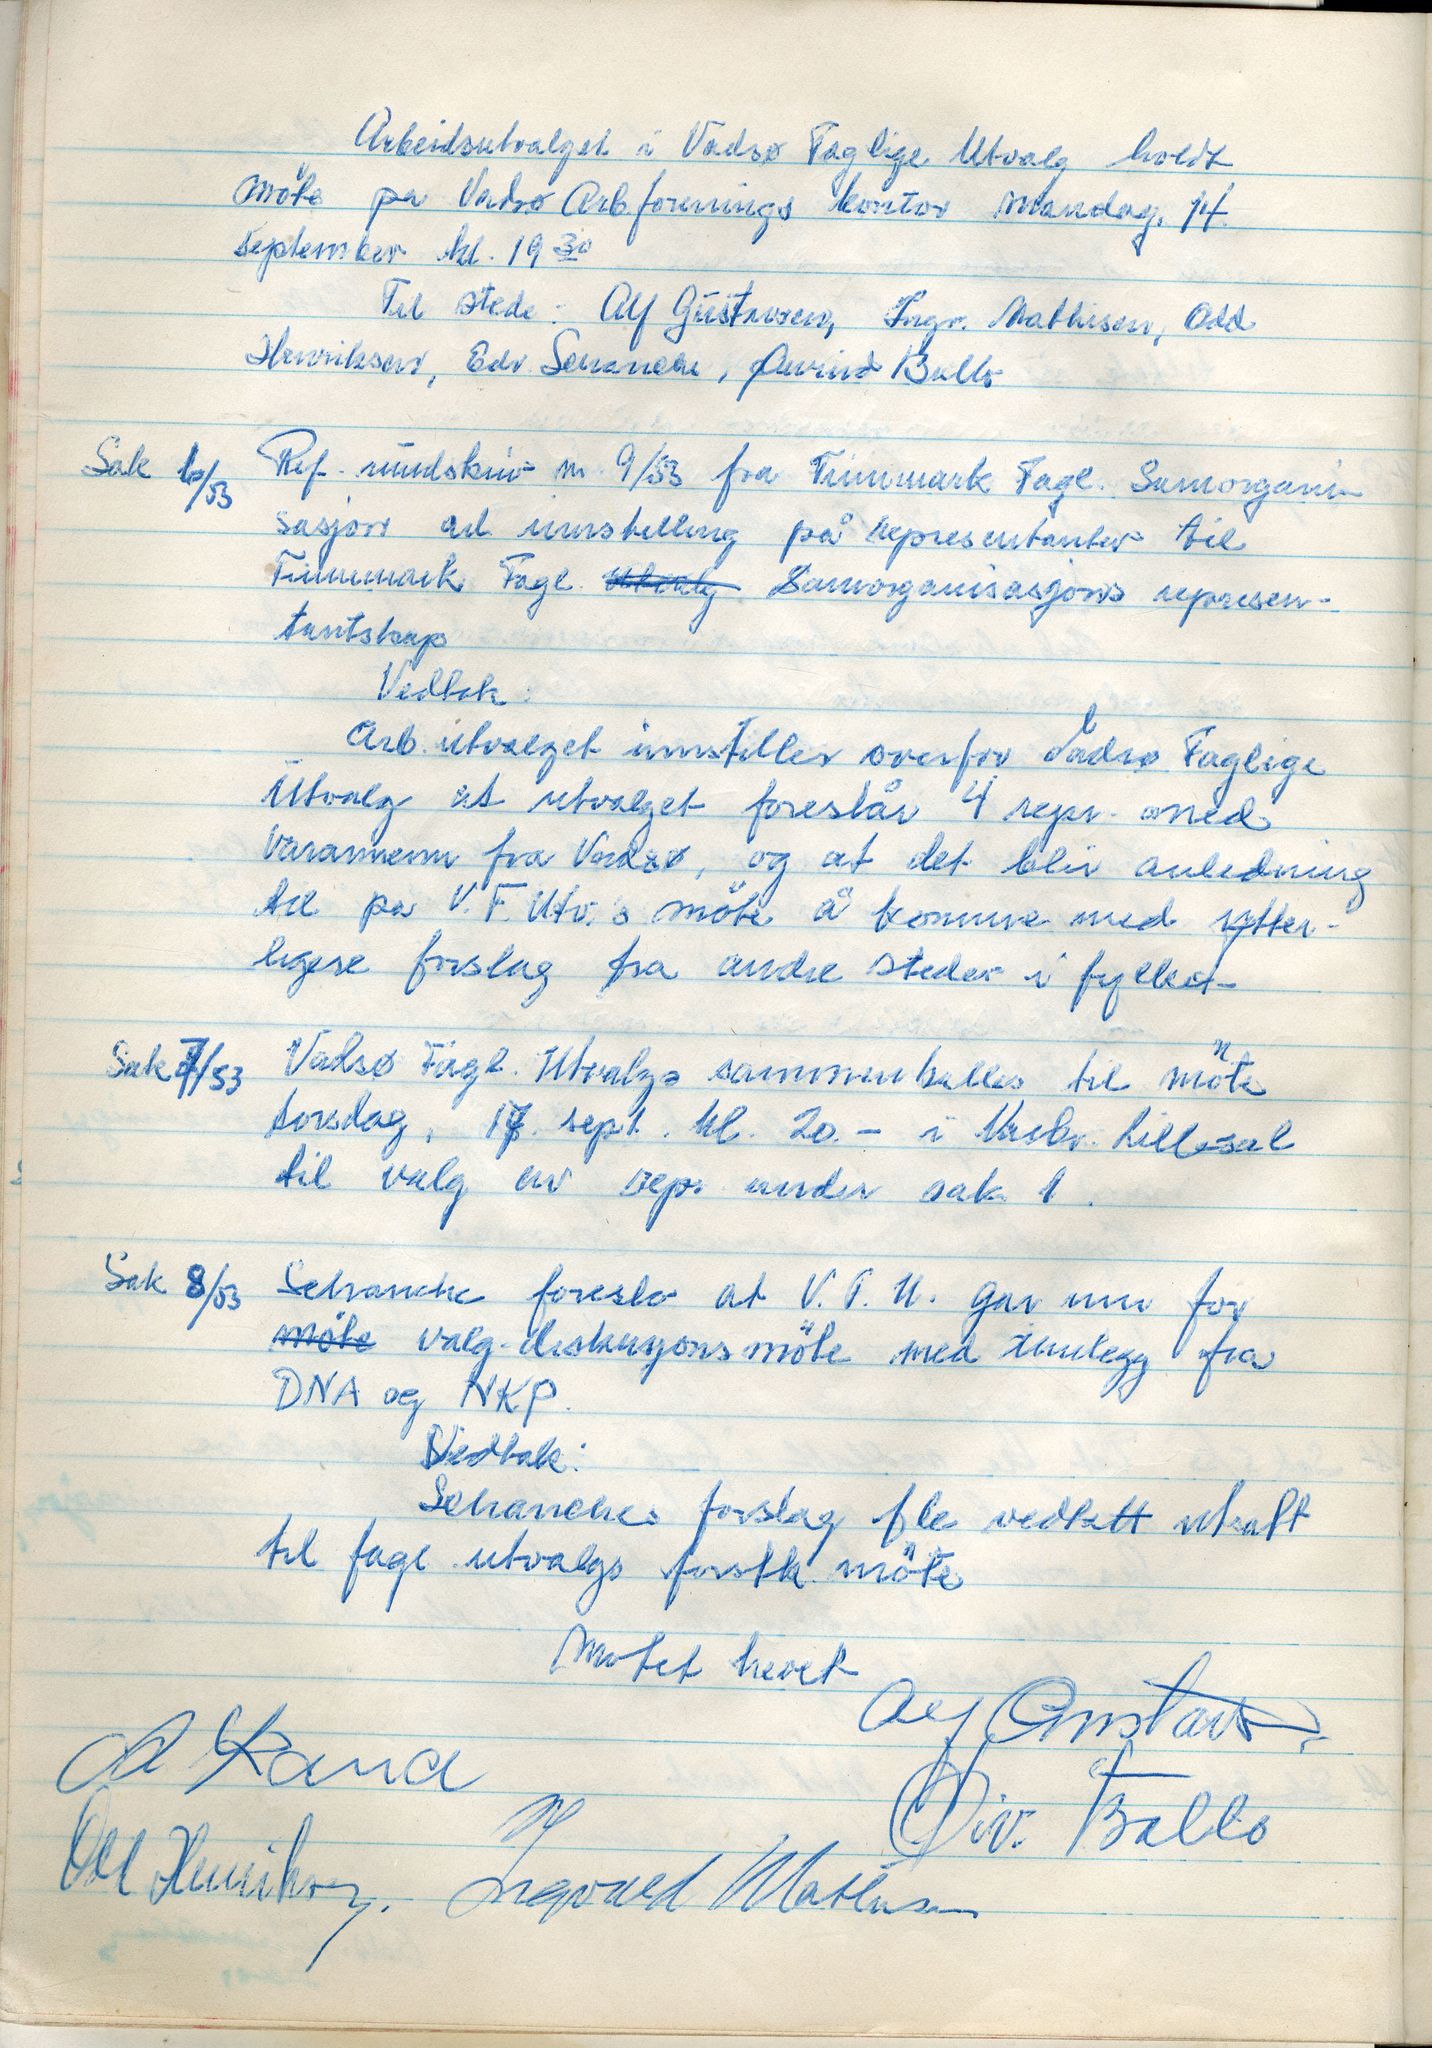 Arbeidsutvalget i Vadsø Faglige Utvalg holdt
möte på Vadsø Arb.forenings kontor mandag, 14.
september kl. 19 30
Til stede: Alf Gustavsen, Ingv. Mathisen, Odd
Henriksen, Edv. Schanche, Øivind Ballo
Sak 6/53 Ref. rundskriv nr. 9/53 fra Finnmark Fagl. Samorgani-
sasjon ad innstilling på representanter til
Finnmark Fagl. Utvalg Samorganisasjons represen-
tantskap
Vedtak:
Arb.utvalget innstiller overfor Vadsø Faglige
Utvalg at utvalget foreslår 4 repr. med
varamenn fra Vadsø, og at det blir anledning
til på V.F.Utv.s möte å komme med ytter-
ligere forslag fra andre steder i fylket-
Sak 7/53 Vadsø Fagl. Utvalgs sammenkalles til möte
torsdag, 17. sept. kl. 20.- i lillesal
til valg av repr. under sak 1.
Sak 8/53 Schanche foreslo at V.F.U. går inn for
möte valg-diskusjonsmöte med innlegg fra
DNA og NKP.
Vedtak:
Schanches forslag ble vedtatt utsatt
til fagl. utvalgs förstk. möte
Møtet hevet
Alf Gustavsen
Øiv. Ballo
Odd Henriksen. Ingvald Mathisen